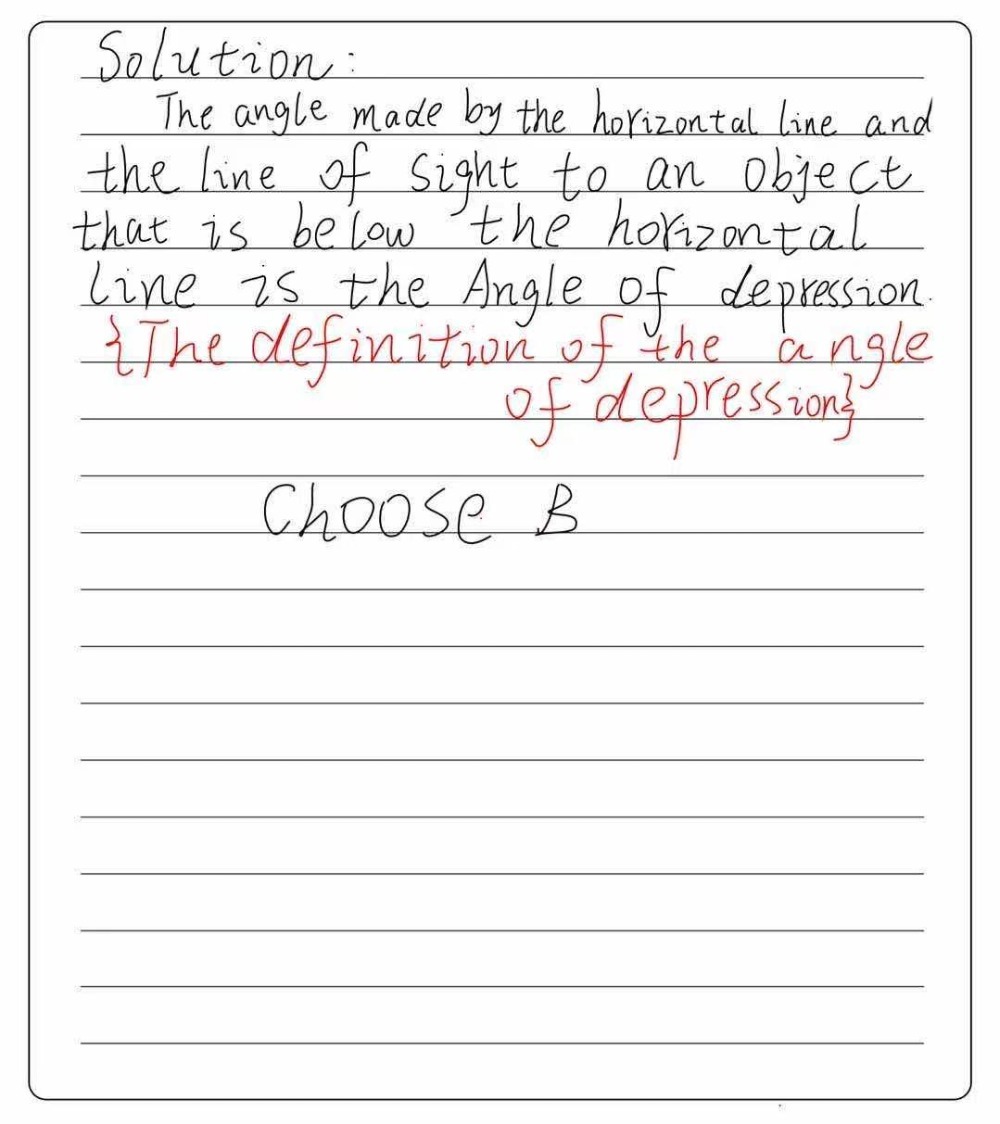 Solution:
The angle made by the horizontal line and
the line of sight to an object
that is below the horizontal
line is the Angle of depression.
{The definition of the angle
of depression}
Choose B